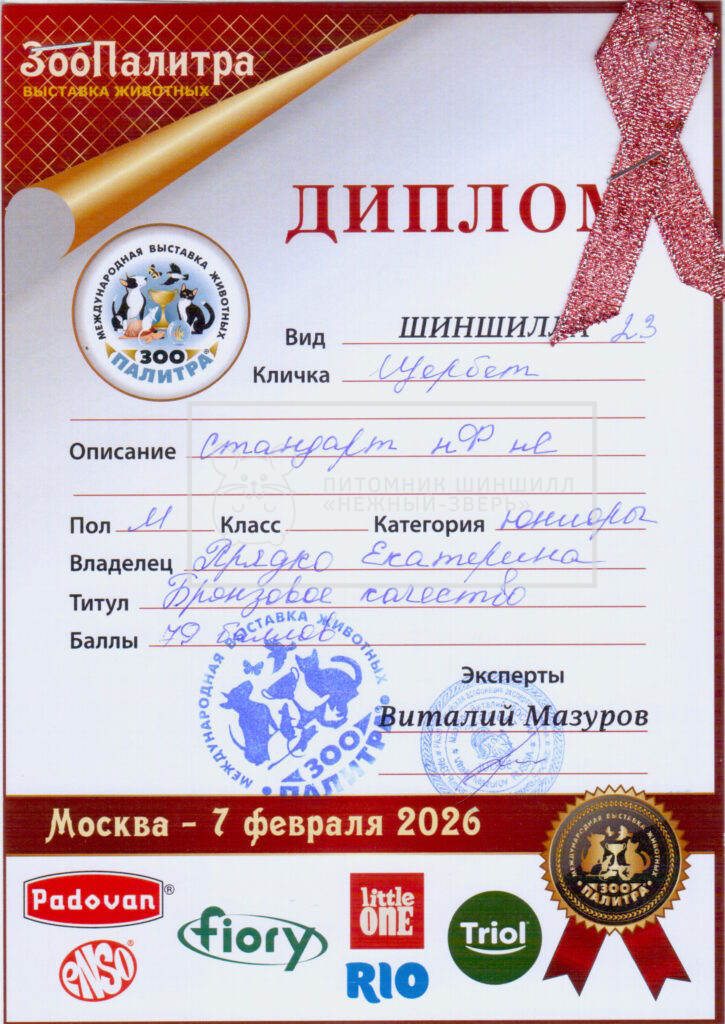 ЗооПалитра
ВЫСТАВКА ЖИВОТНЫХ
ДИПЛОМ
МЕЖДУНАРОДНАЯ ВЫСТАВКА ЖИВОТНЫХ
ЗОО
ПАЛИТРА®
Вид ШИНШИЛЛА 23
Кличка Щербет
Описание стандарт нФ не
ПИТОМНИК ШИНШИЛЛ
«НЕЖНЫЙ-ЗВЕРЬ»
Пол М Класс Категория юниоры
Владелец Прядко Екатерина
Титул Бронзовое качество
Баллы 79 баллов
МЕЖДУНАРОДНАЯ ВЫСТАВКА ЖИВОТНЫХ
ЗОО
ПАЛИТРА
Эксперты
Виталий Мазуров
Москва - 7 февраля 2026
МЕЖДУНАРОДНАЯ ВЫСТАВКА ЖИВОТНЫХ
ЗОО
ПАЛИТРА
Padovan®
enso®
fiory
little
ONE
RIO
Triol